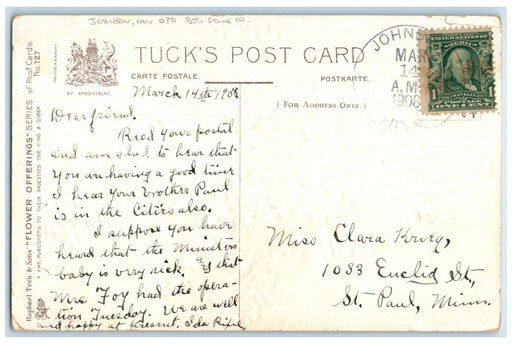 JOHNSON, MN DPO BIG STONE CO.
TUCK'S POST CARD
CARTE POSTALE.
POSTKARTE.
BY APPOINTMENT
(FOR ADDRESS ONLY.)
JOHNS
MAR
14
A.M.
1908
UNITED STATES OF
AMERICA
POSTAGE ONE CENT
Raphael Tuck & Sons' "FLOWER OFFERINGS" SERIES of Post Cards No. 127
ART PUBLISHERS TO THEIR MAJESTIES THE KING & QUEEN
March 14th 1908
Dear friend.
Recd your postal
and am glad to hear that
you are having a good time
I hear your brother Paul
is in the Cities also.
I suppose you have
heard that the Ministers
baby is very sick. & that
Mrs Foy had the opera-
tion Tuesday. We are well
and happy at present. Ida
Miss Clara Krug,
1033 Euclid St,
St. Paul, Minn.